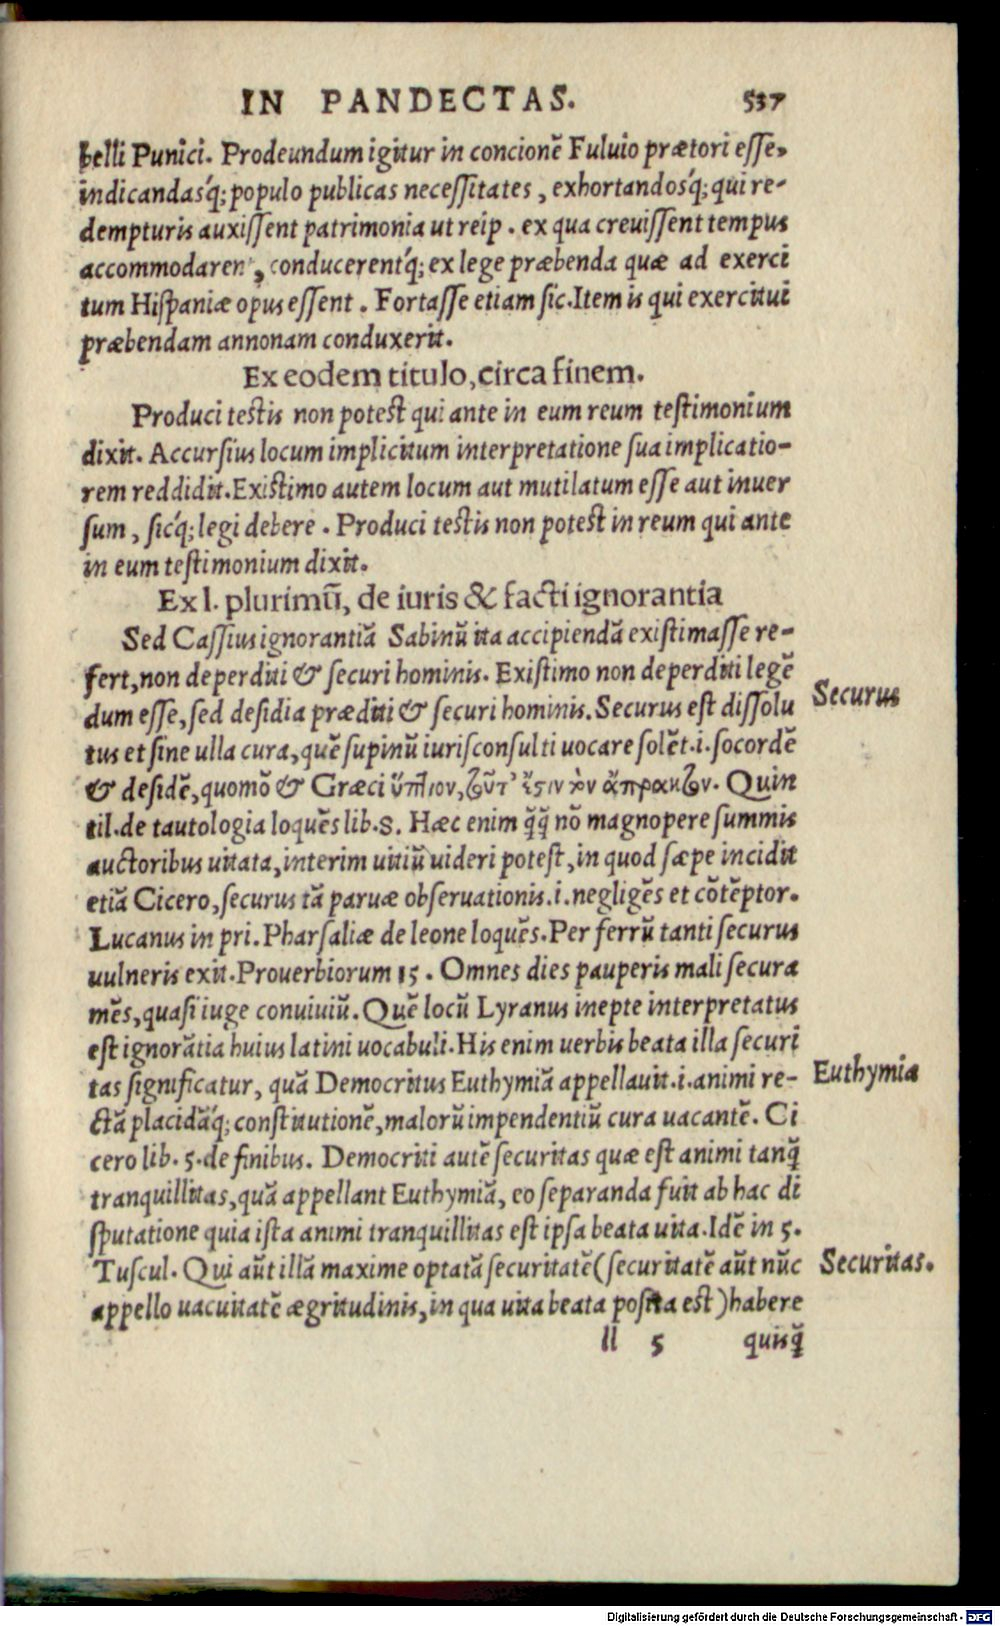 IN PANDECTAS. 537
belli Punici. Prodeundum igitur in concionē Fuluio prætori esse,
indicandasq́; populo publicas necessitates, exhortandosq́; qui re-
dempturis auxissent patrimonia ut reip. ex qua creuissent tempus
accommodaren, conducerentq́; ex lege præbenda quæ ad exerci
tum Hispaniæ opus essent. Fortasse etiam sic. Item is qui exercitui
præbendam annonam conduxerit.
Ex eodem titulo, circa finem.
Produci testis non potest qui ante in eum reum testimonium
dixit. Accursius locum implicitum interpretatione sua implicatio-
rem reddidit. Existimo autem locum aut mutilatum esse aut inuer
sum, sicq́; legi debere. Produci testis non potest in reum qui ante
in eum testimonium dixit.
Ex l. plurimū, de iuris & facti ignorantia
Sed Cassius ignorantiā Sabinū ita accipiendā existimasse re-
fert, non deperditi & securi hominis. Existimo non deperditi legē
dum esse, sed desidia præditi & securi hominis. Securus est dissolu
Securus
tus et sine ulla cura, quē supinū iurisconsulti uocare solēt .i. socordē
& desidē, quomō & Græci ὕπτιον, ζοῦτ' ἔστιν τὸν ἄπρακτον. Quin
til. de tautologia loquēs lib. 8. Hæc enim q̄q̄ nō magnopere summis
auctoribus uitata, interim uitiū uideri potest, in quod sæpe incidit
etiā Cicero, securus tā paruæ obseruationis .i. negligēs et cōtēptor.
Lucanus in pri. Pharsaliæ de leone loquēs. Per ferrū tanti securus
uulneris exit. Prouerbiorum 15. Omnes dies pauperis mali secura
mēs, quasi iuge conuiuiū. Quē locū Lyranus inepte interpretatus
est ignorātia huius latini uocabuli. His enim uerbis beata illa securi
tas significatur, quā Democritus Euthymiā appellauit .i. animi re-
Euthymia
ctā placidāq́; constitutionē, malorū impendentiū cura uacantē. Ci
cero lib. 5. de finibus. Democriti autē securitas quæ est animi tanq̄
tranquillitas, quā appellant Euthymiā, eo separanda fuit ab hac di
sputatione quia ista animi tranquillitas est ipsa beata uita. Idē in 5.
Tuscul. Qui aūt illā maxime optatā securitatē (securitatē aūt nūc
Securitas.
appello uacuitatē ægritudinis, in qua uita beata posita est) habere
ll 5 quisq̄
Digitalisierung gefördert durch die Deutsche Forschungsgemeinschaft - DFG